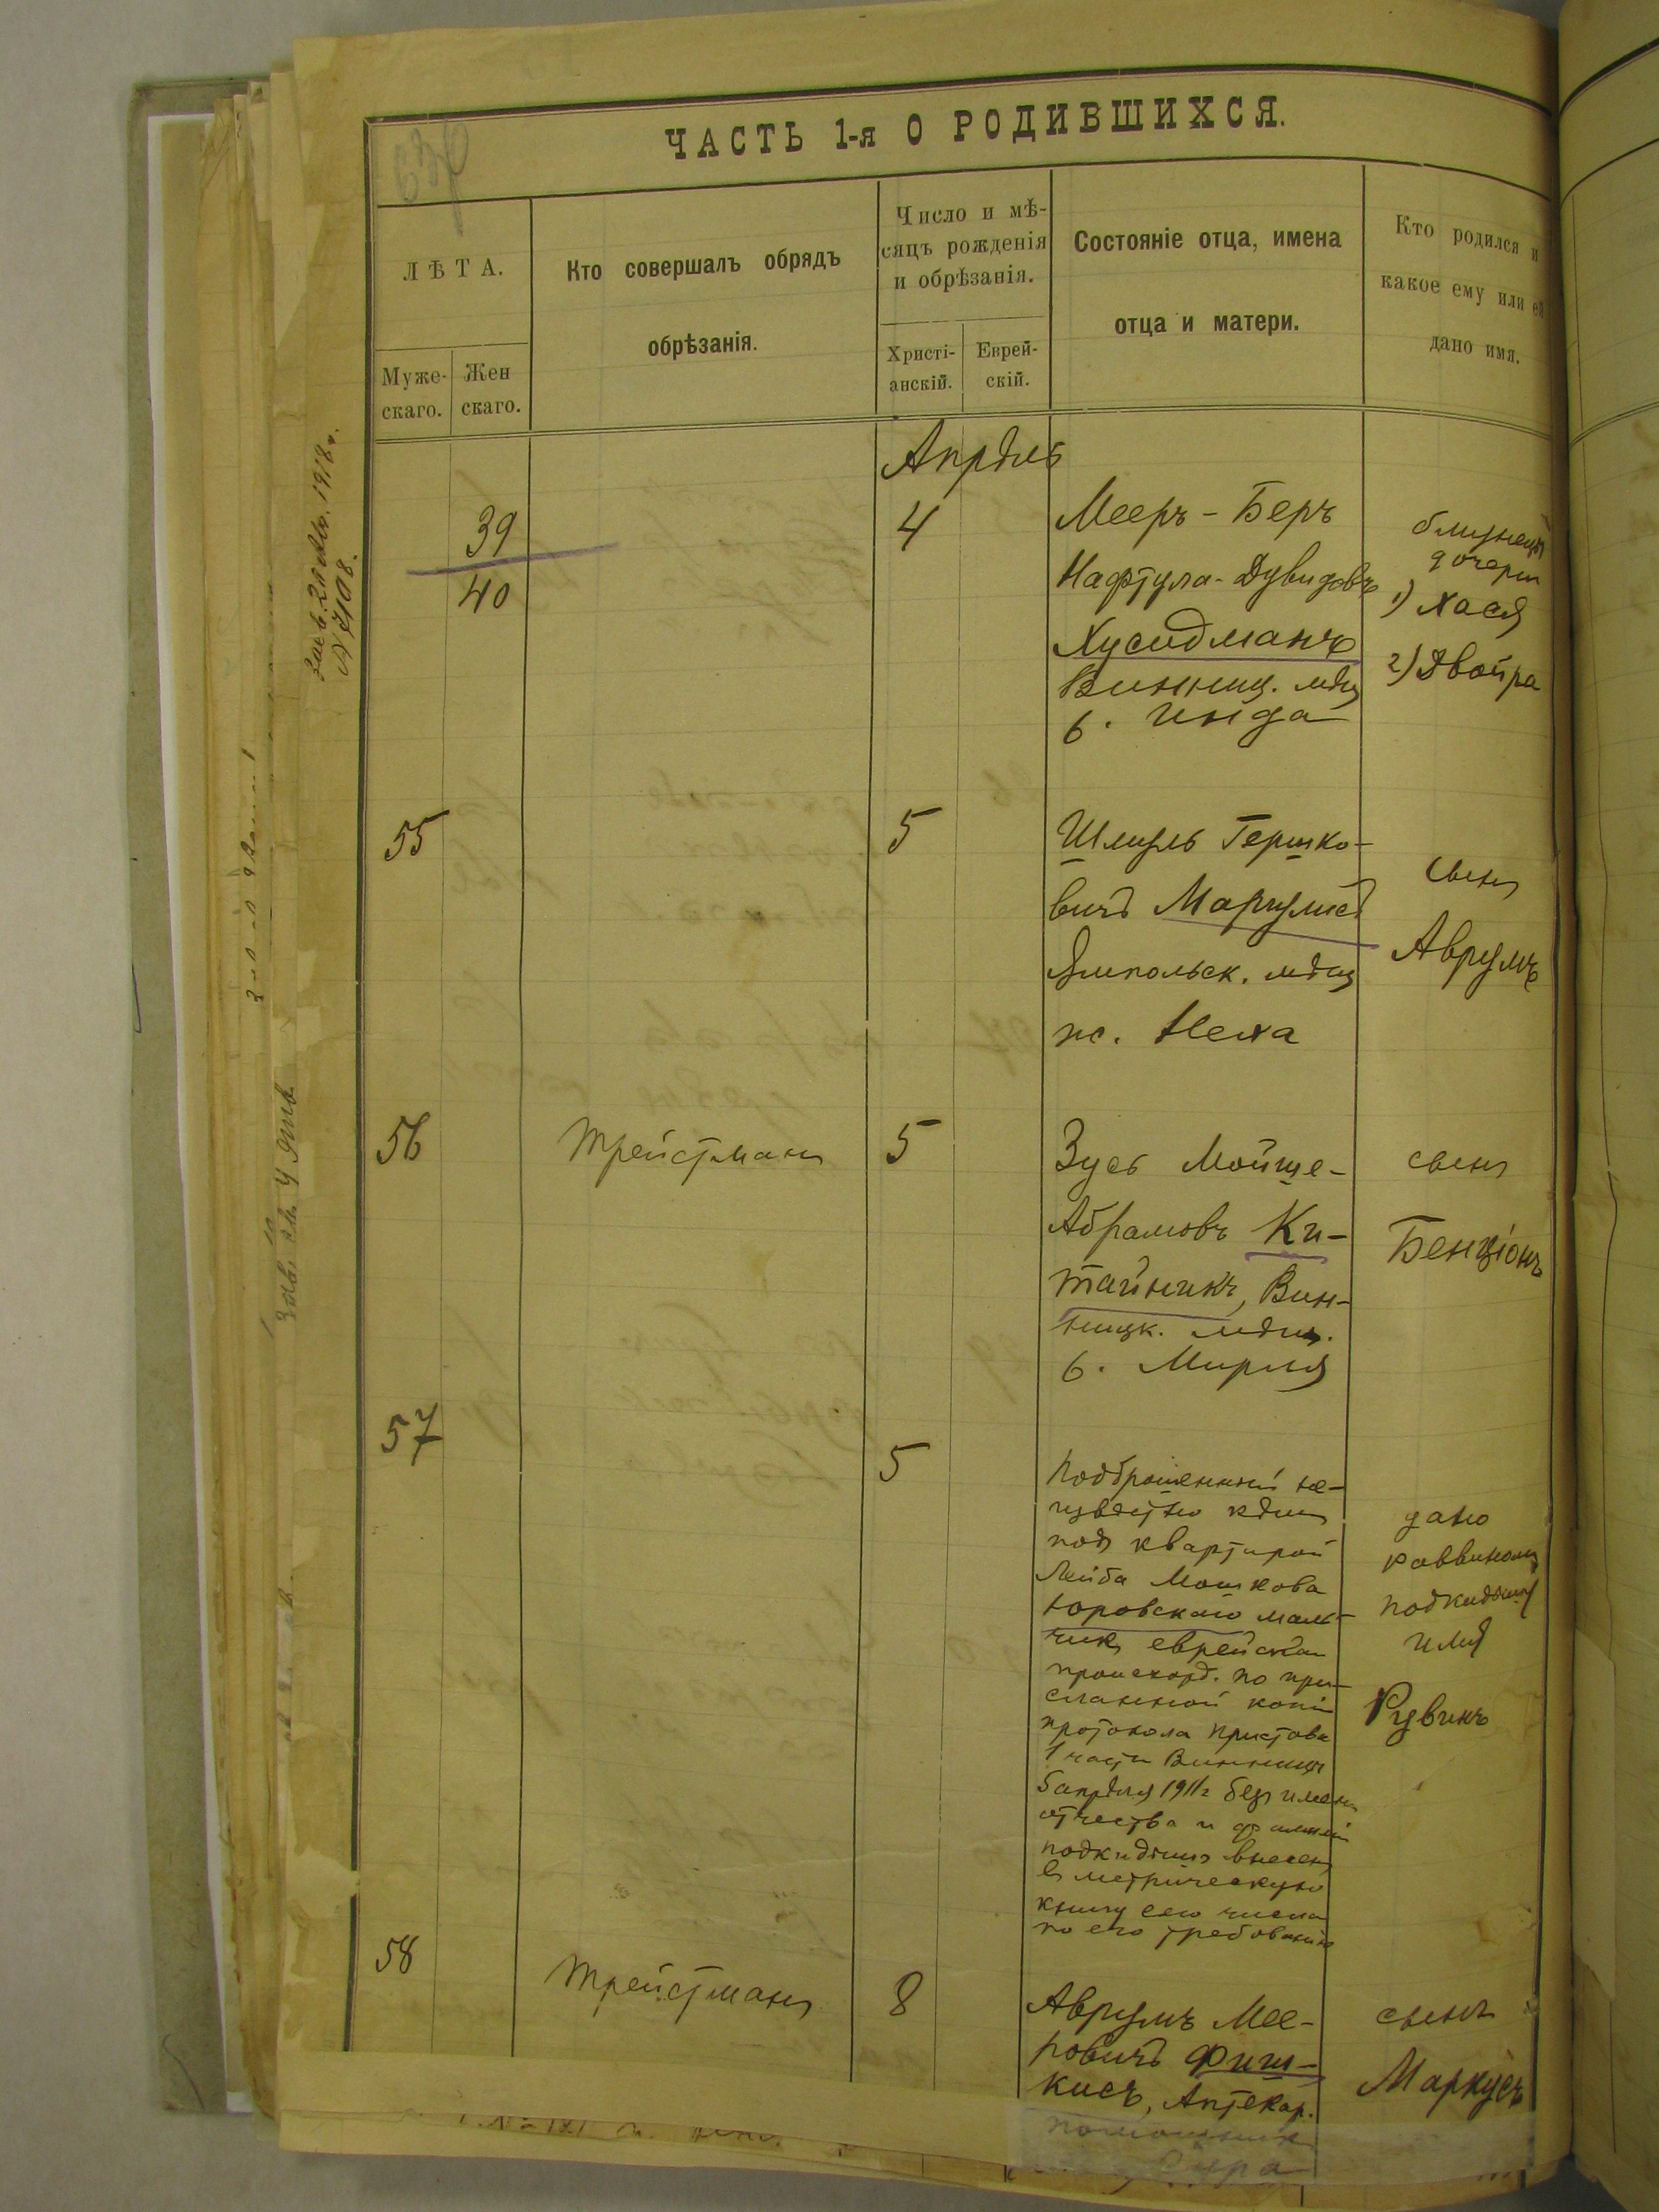 ЧАСТЬ 1-я О РОДИВШИХСЯ.
ЛѢТА.
Муже-
скаго.
Жен
скаго.
Кто совершалъ обрядъ
обрѣзанія.
Число и мѣ-
сяцъ рожденія
и обрѣзанія.
Христі-
анскій.
Еврей-
скій.
Состояніе отца, имена
отца и матери.
Кто родился и
какое ему или ей
дано имя.
Апрѣль
39
40
4
Мееръ-Беръ
Нафтула-Дувидовъ
Хусидманъ
Винниц. мѣщ
б. Инда
близнецы
дочери
1) Хася
2) Двойра
55
5
Шмуль Гершко-
вичъ Маргулисъ
Ямпольск. мѣщ
ж. Неха
сынъ
Аврумъ
56
Трейстманъ
5
Зусь Мойше-
Абрамовъ Ки-
тайникъ, Вин-
ницк. мѣщ.
б. Мирля
сынъ
Бенціонъ
57
5
Подброшенный не-
извѣстно кѣмъ
подъ квартирой
Лейба Мошкова
Юровскаго маль-
чикъ еврейскаго
происхожд. по при-
сланной копіи
протокола Пристава
1 части Винницы
5 апрѣля 1911г безъ имени
отчества и фамиліи
подкидышъ внесенъ
въ метрическую
книгу сего числа
по его требованію
дано
раввиномъ
подкидышу
имя
Рувинъ
58
Трейстманъ
8
Аврумъ Мее-
ровичъ Фиш-
кисъ, Аптекар.
помощникъ
Сура
сынъ
Маркусъ